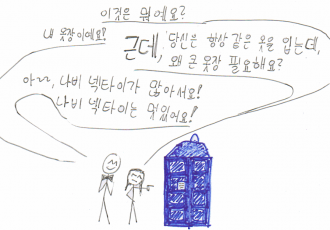 이것은 뭐예요?
내 옷장이예요!
근데, 당신은 항상 같은 옷을 입는데,
왜 큰 옷장 필요해요?
아니, 나비 넥타이가 많아서요!
나비 넥타이는 멋있어요!